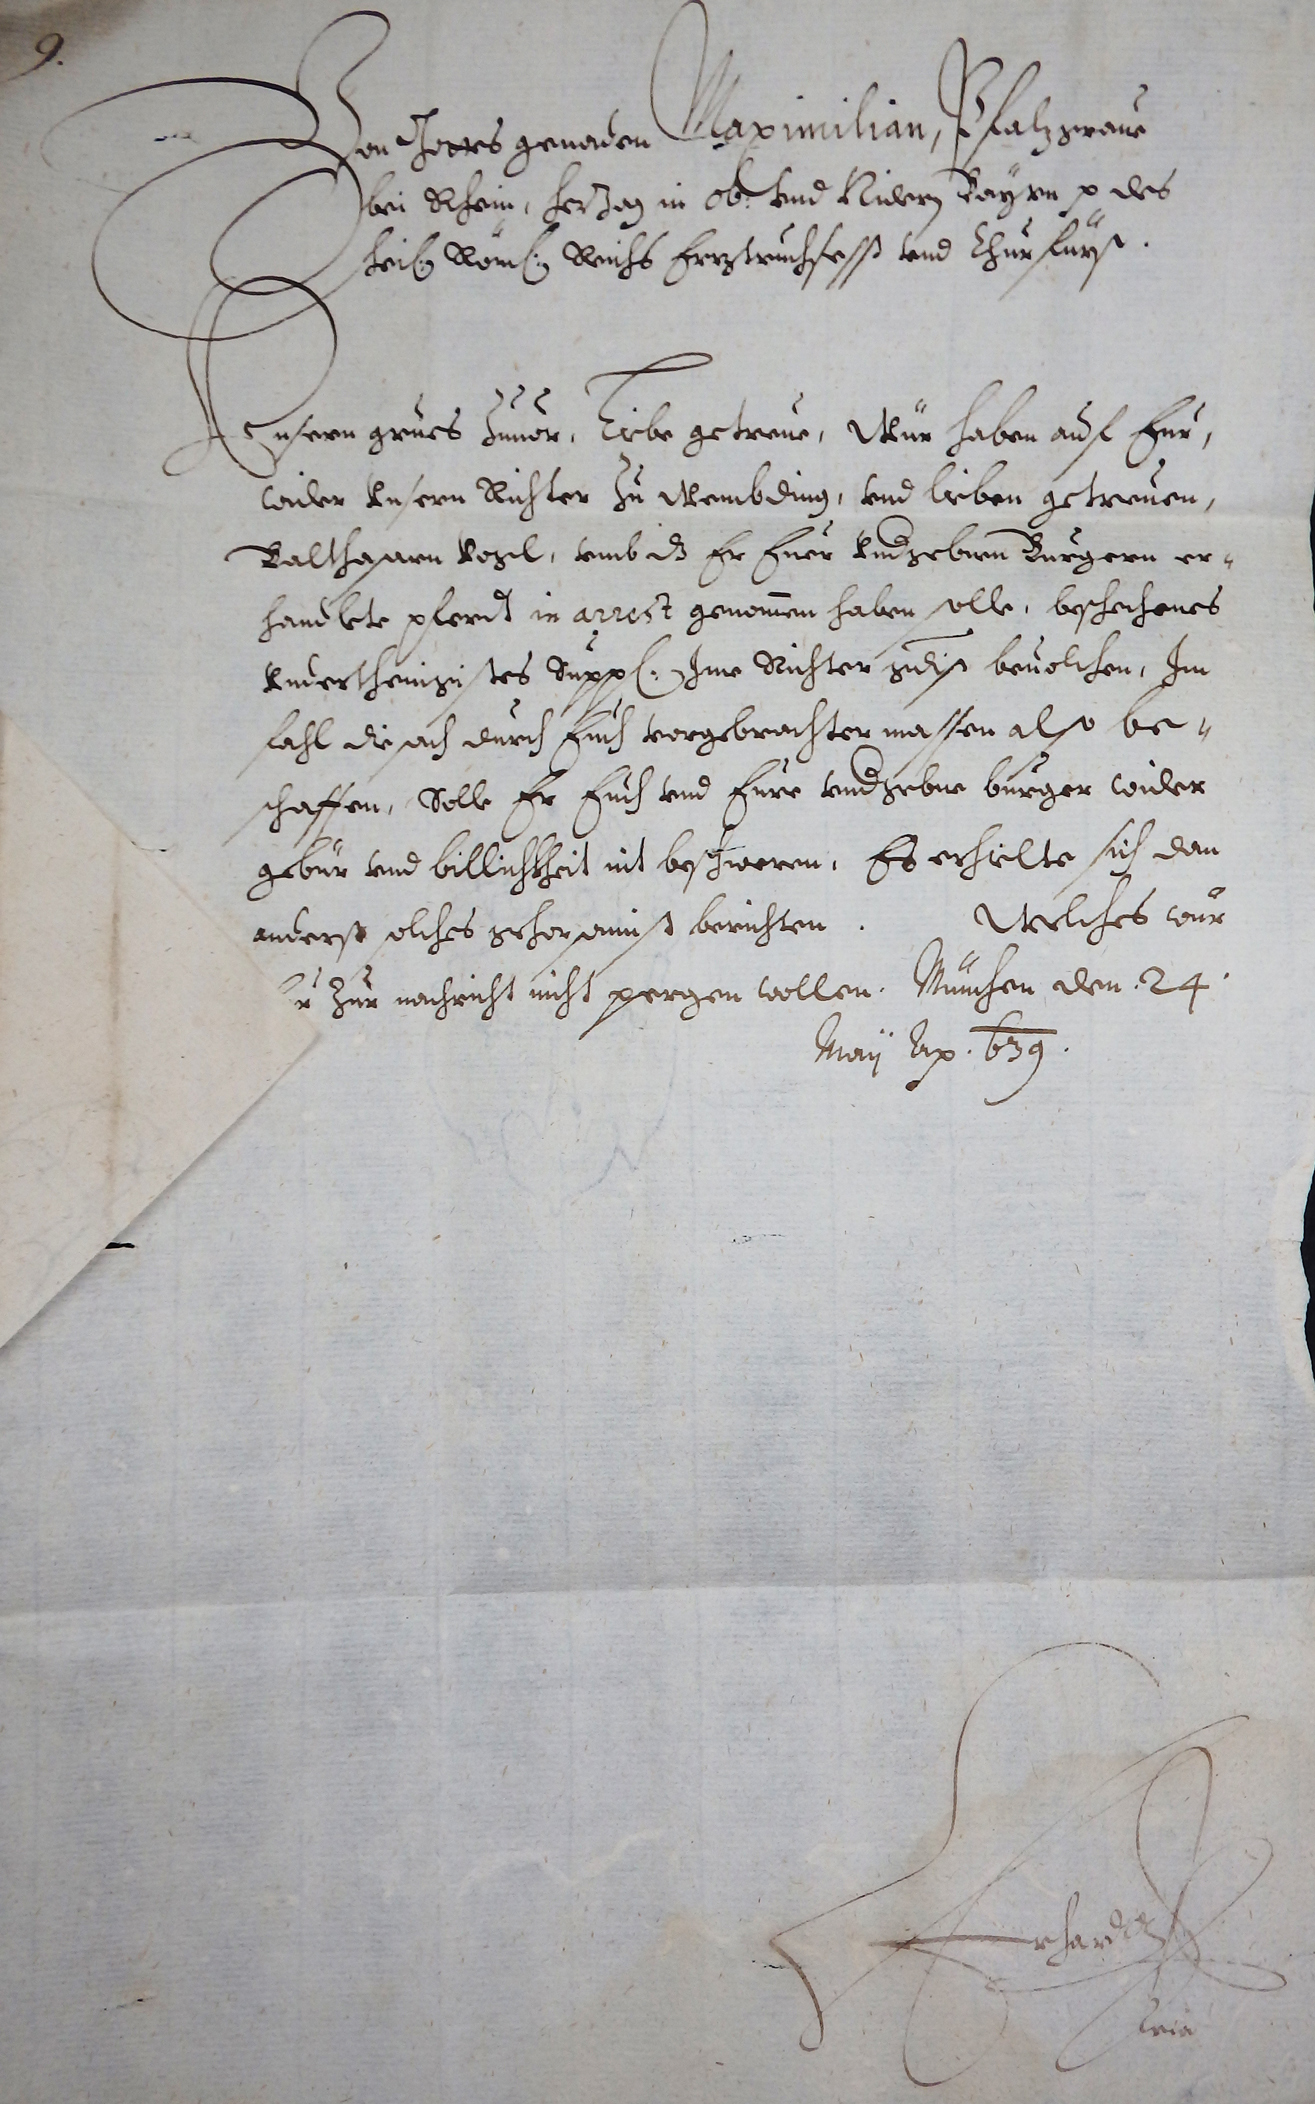 9.
Von Gottes genaden Maximilian, Pfalzgraue
bei Rhein, Herzog in Ob: vnd Nidern Bayrn p des
heil: Röm: Reichs Erztruchsess vnd Churfürst.
Vnsern grues Zuuor, Liebe getreue, Wür haben auf Eur,
wider Vnsern Richter Zu Wembding, vnd lieben getreuen,
Balthasarn Vogl, vmb dz Er Euer Burgern er-
handlete pferdt in arrest genommen haben solle, beschechenes
Vnderthenigistes Suppl: Ime Richter gdist beuolchen, Im
fahl die sach durch Euch vorgebrachter massen also be-
schaffen, Solle Er Euch vnd Eure burger wider
gebür vnd billichkheit nit beschweren, Es erhielte sich dan
anderst solches gehorsamist berichten. Welches wür
Zur nachricht nicht pergen wollen. München den .24.
May Ao. 639.
Erhardt